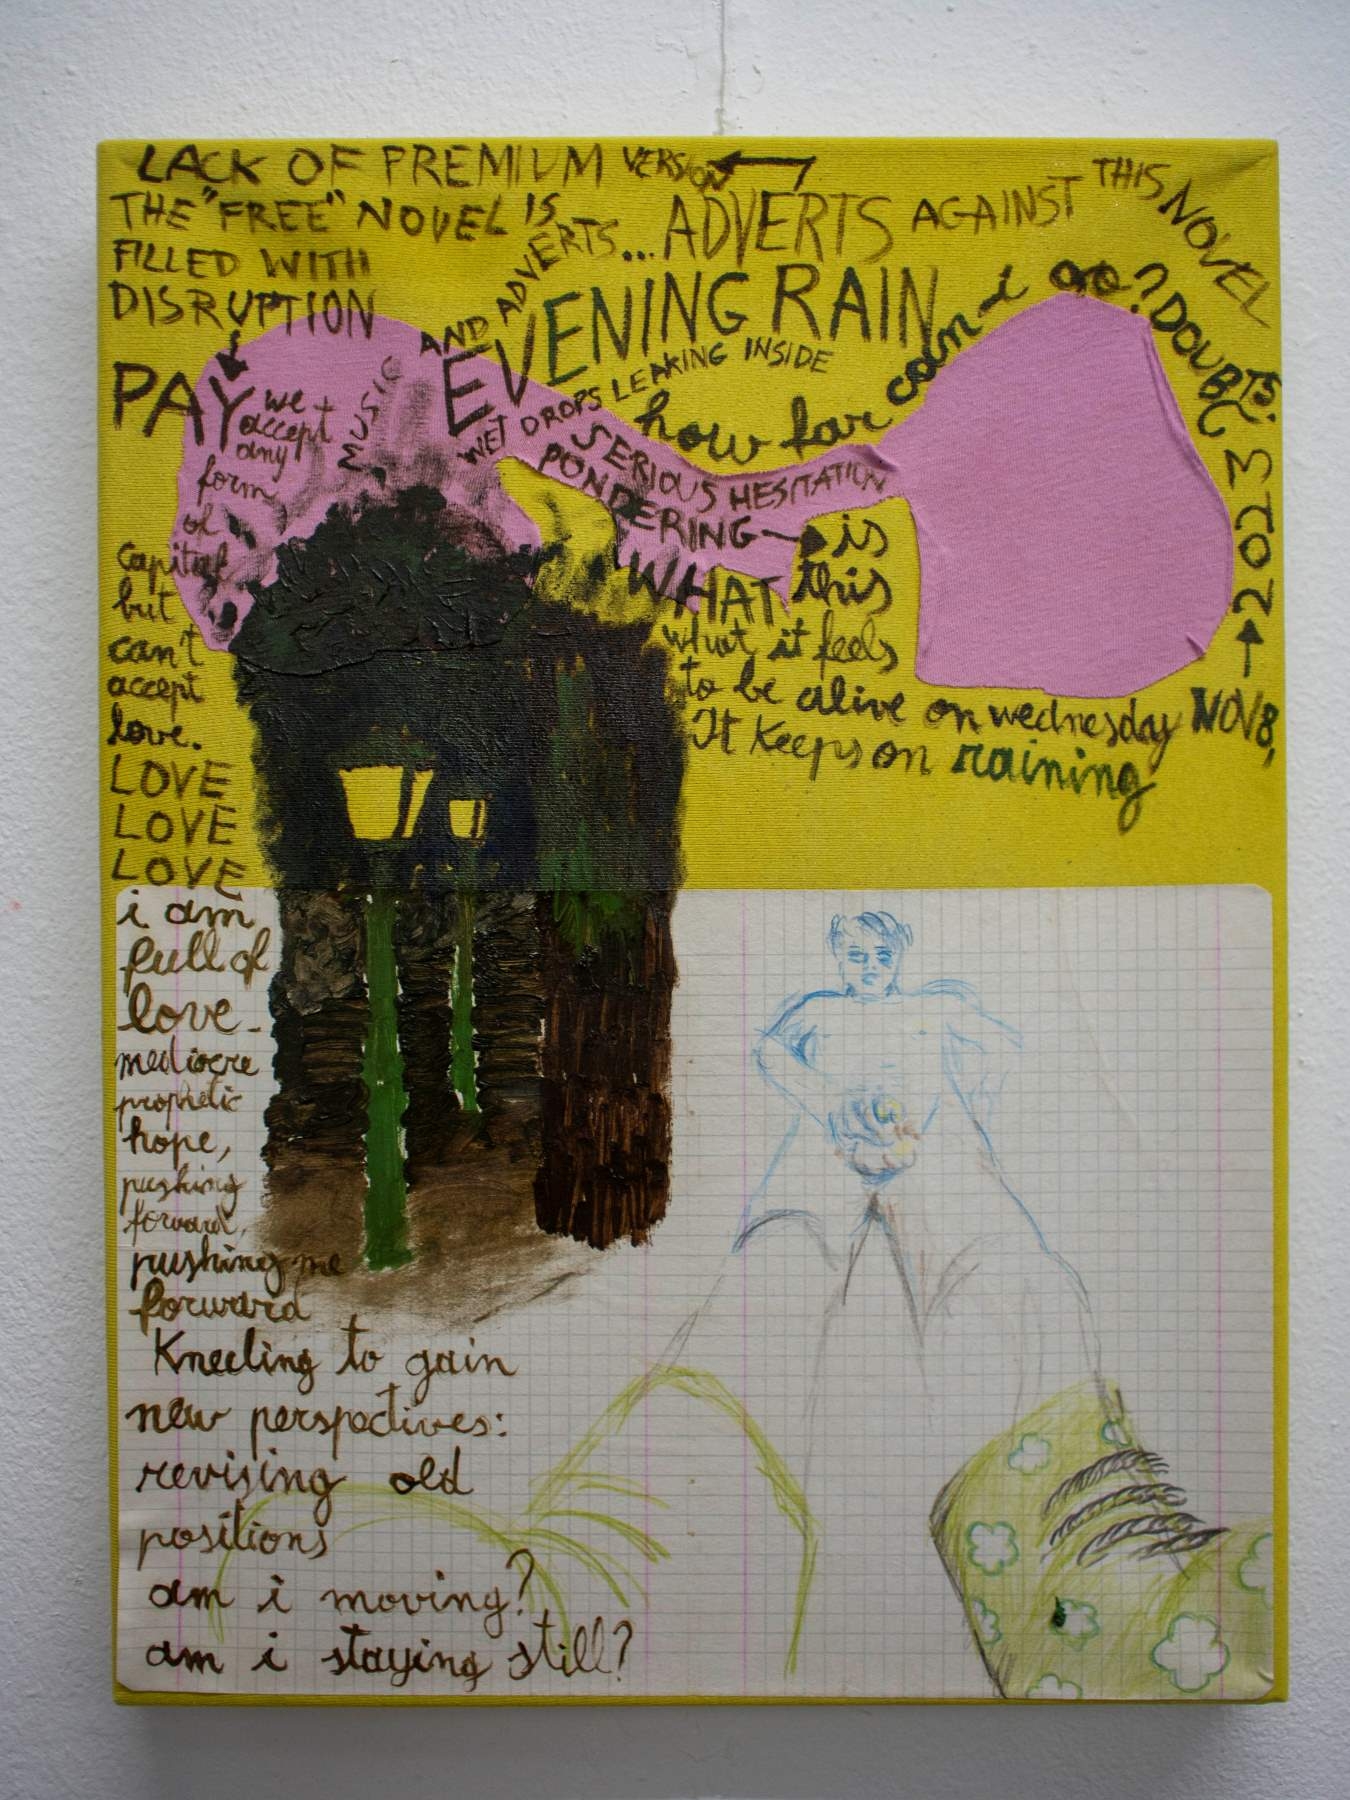 LACK OF PREMIUM VERSION
THE "FREE" NOVEL IS
FILLED WITH
DISRUPTION
AND ADVERTS... ADVERTS AGAINST THIS NOVEL
PAY
we
accept
any
form
of
capital
but
can't
accept
love.
LOVE
LOVE
LOVE
i am
full of
love-
mediocre
prophetic
hope,
pushing
forward,
pushing me
forward
Kneeling to gain
new perspectives:
revising old
positions
am i moving?
am i staying still?
MUSIC
EVENING RAIN
WET DROPS LEAKING INSIDE
how far can i go? DOUBTS.
SERIOUS HESITATION
PONDERING
WHAT
is
this
what it feels
to be alive on wednesday NOV 8, 2023
It keeps on raining